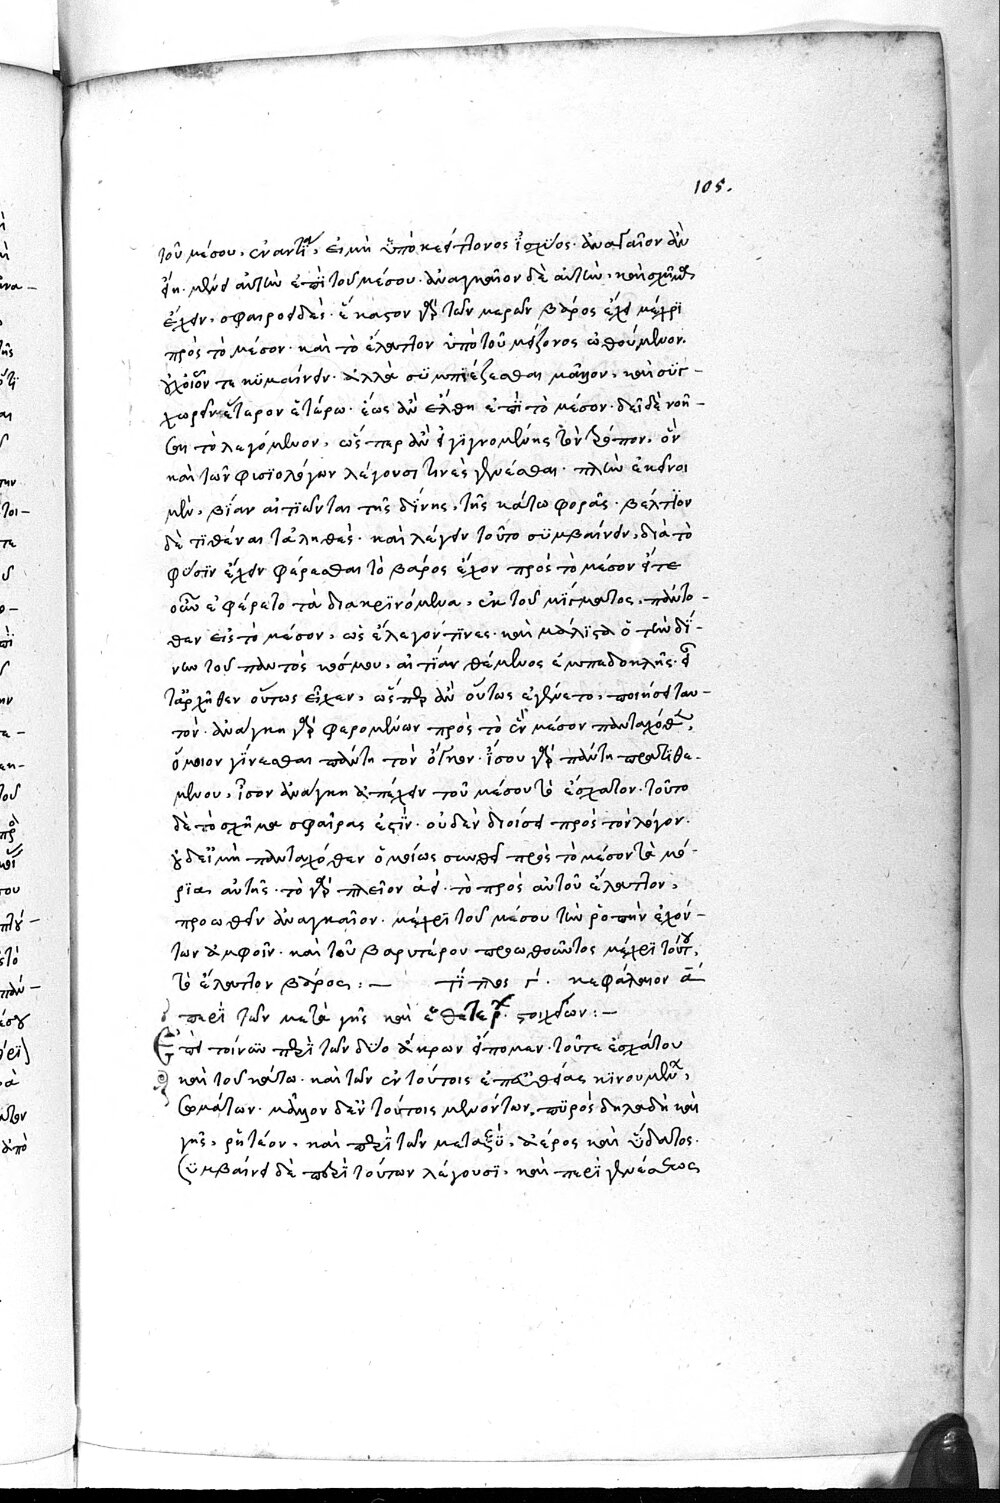 105.
τοῦ μέσου, ἐναντία, εἰ μὴ ὑπὸ κρείττονος ἰσχύος. ἀναγκαῖον ἂν
εἴη. μένει αὐτὴν ἐπὶ τοῦ μέσου. ἀναγκαῖον δὲ αὐτὴν, καὶ σχῆμα
ἔχειν, σφαιροειδές. ἕκαστον γὰρ τῶν μερῶν βάρος ἔχει μέχρι
πρὸς τὸ μέσον. καὶ τὸ ἔλαττον ὑπὸ τοῦ μείζονος ὠθούμενον.
οὐχ οἷόν τε κυμαίνειν. ἀλλὰ συμπιέζεσθαι μᾶλλον, καὶ συγ-
χωρεῖν ἕτερον ἑτέρω. ἕως ἂν ἔλθη ἐπὶ τὸ μέσον. δεῖ δὲ νοῆ-
σαι τὸ λεγόμενον, ὥσπερ ἂν εἰ γιγνομένης τὸν τρόπον, ὃν
καὶ τῶν φυσιολόγων λέγουσί τινες γενέσθαι. πλὴν ἐκεῖνοι
μὲν, βίαν αἰτιῶνται τῆς δίνης, τῆς κάτω φορᾶς. βέλτιον
δὲ τιθέναι τἀληθὲς. καὶ λέγειν τοῦτο συμβαίνειν, διὰ τὸ
φύσιν ἔχειν φέρεσθαι τὸ βάρος ἔχον πρὸς τὸ μέσον εἴτε
οὖν ἐφέρετο τὰ διακρινόμενα, ἐκ τοῦ μίγματος, πάντο-
θεν εἰς τὸ μέσον, ὡς ἔλεγόν τινες. καὶ μάλιστα ὁ τὴν δί-
νην τοῦ παντὸς κόσμου, αἰτίαν θέμενος ἐμπεδοκλῆς. εἴτ
ἀρχῆθεν οὕτως εἶχεν, ὥσπερ ἂν οὕτως ἐγένετο, ποιήσει ταυ-
τόν. ἀνάγκη γὰρ φερομένων πρὸς τὸ ἓν μέσον πανταχόθεν,
ὅμοιον γίνεσθαι πάντη τὸν ὄγκον. ἴσου γὰρ πάντη προστιθε-
μένου, ἴσον ἀνάγκη ἀπέχειν τοῦ μέσου τὸ ἔσχατον. τοῦτο
δὲ τὸ σχῆμα σφαίρας ἐστίν. οὐδὲν διοίσει πρὸς τὸν λόγον.
οὐδ' εἰ μὴ πανταχόθεν ὁμοίως συνθεῖ πρὸς τὸ μέσον τὰ μό-
ρια αὐτῆς. τὸ γὰρ πλεῖον ἀεί. τὸ πρὸς αὐτοῦ ἔλαττον,
προωθεῖν ἀναγκαῖον. μέχρι τοῦ μέσου τὴν ῥοπὴν ἐχόν-
των ἀμφοῖν. καὶ τοῦ βαρυτέρου προωθοῦντος μέχρι τούτου,
τὸ ἔλαττον βάρος:— τίτλος γ΄. κεφάλαιον α΄
περὶ τῶν μετὰ γῆς καὶ αἰθέρα στοιχείων:—
Ἐπεὶ τοίνυν περὶ τῶν δύο ἄκρων εἴπομεν. τοῦτε ἐσχάτου
καὶ τοῦ κάτω. καὶ τῶν ἐν τούτοις ἐπ' εὐθείας κινουμένων,
σωμάτων. μᾶλλον δ' ἐν τούτοις μενόντων, πυρὸς δηλαδὴ καὶ
γῆς, ῥητέον, καὶ περὶ τῶν μεταξύ, ἀέρος καὶ ὕδατος.
συμβαίνει δὲ περὶ τούτων λέγουσι, καὶ περὶ γενέσεως